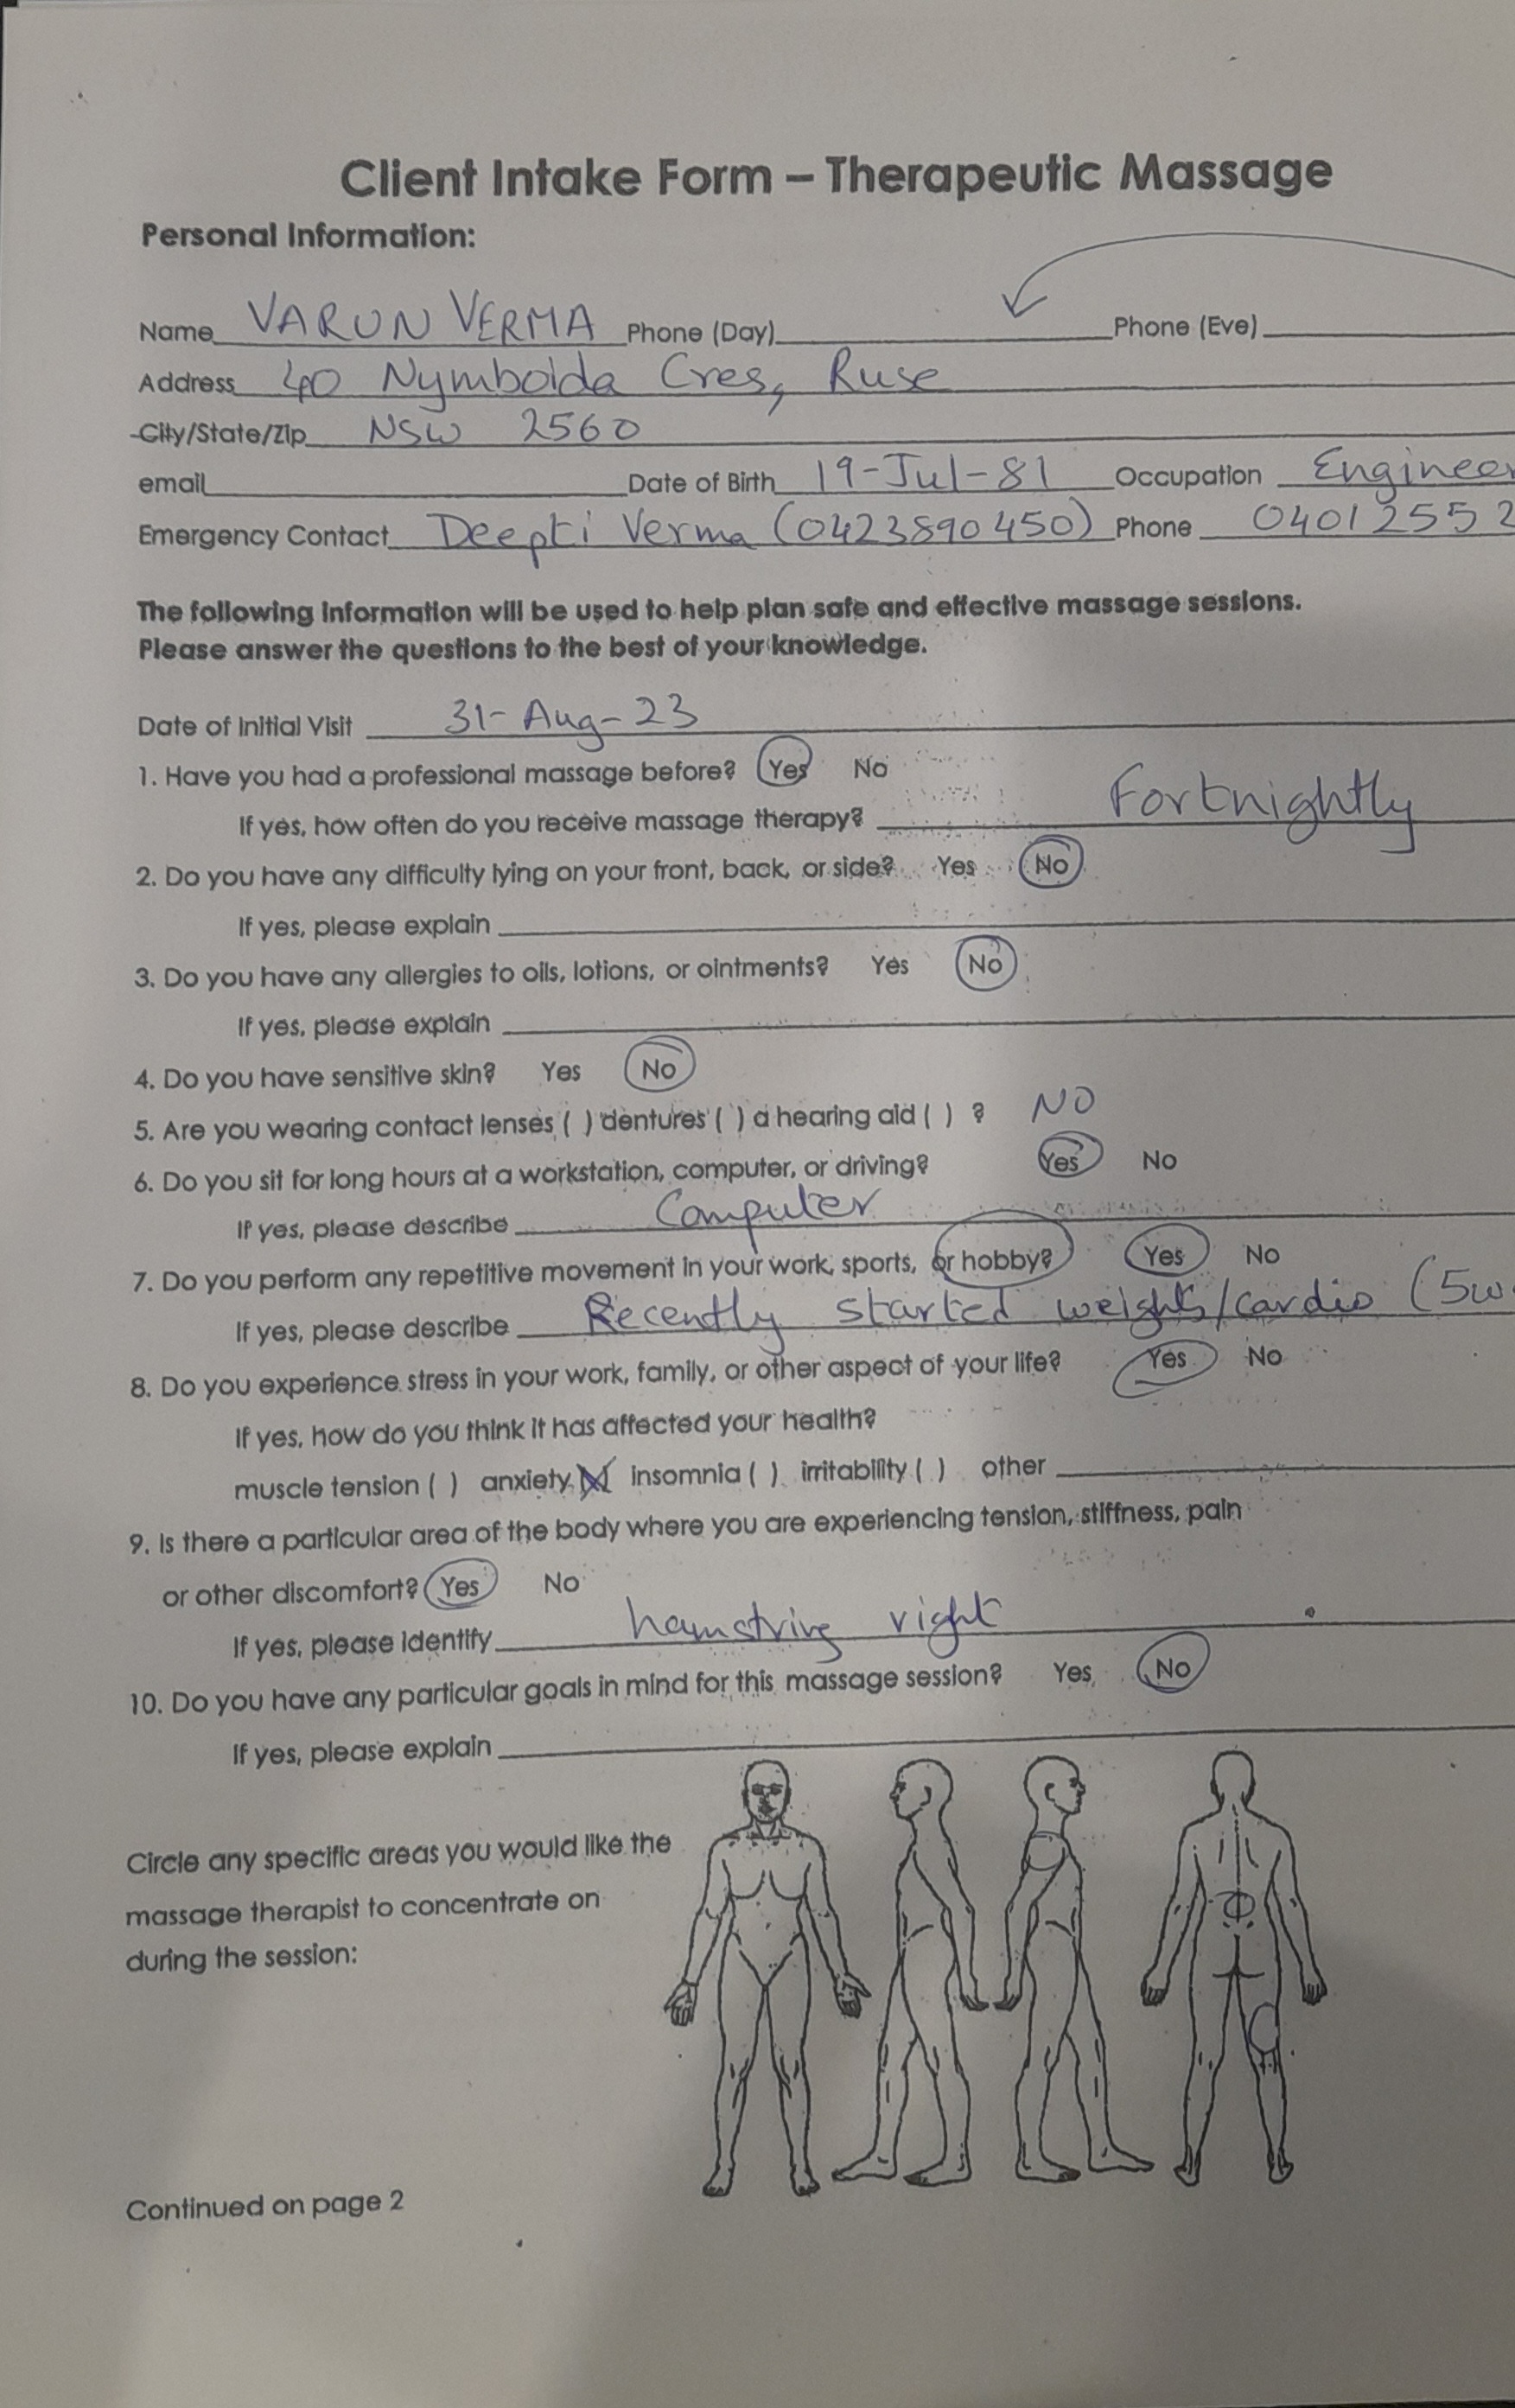 Client Intake Form – Therapeutic Massage
Personal Information:
Name VARUN VERMA Phone (Day) Phone (Eve)
Address 40 Nymboida Cres, Ruse
City/State/Zip NSW 2560
email Date of Birth 19-Jul-81 Occupation Engineer
Emergency Contact Deepti Verma (0423890450) Phone 04012552
The following information will be used to help plan safe and effective massage sessions.
Please answer the questions to the best of your knowledge.
Date of Initial Visit 31-Aug-23
1. Have you had a professional massage before? Yes No
If yes, how often do you receive massage therapy? Fortnightly
2. Do you have any difficulty lying on your front, back, or side? Yes No
If yes, please explain
3. Do you have any allergies to oils, lotions, or ointments? Yes No
If yes, please explain
4. Do you have sensitive skin? Yes No
5. Are you wearing contact lenses ( ) dentures ( ) a hearing aid ( ) ? NO
6. Do you sit for long hours at a workstation, computer, or driving? Yes No
If yes, please describe Computer
7. Do you perform any repetitive movement in your work, sports, or hobby? Yes No
If yes, please describe Recently started weights/cardio (5w
8. Do you experience stress in your work, family, or other aspect of your life? Yes No
If yes, how do you think it has affected your health?
muscle tension ( ) anxiety (X) insomnia ( ) irritability ( ) other
9. Is there a particular area of the body where you are experiencing tension, stiffness, pain
or other discomfort? Yes No
If yes, please identify hamstring right
10. Do you have any particular goals in mind for this massage session? Yes No
If yes, please explain
Circle any specific areas you would like the
massage therapist to concentrate on
during the session:
Continued on page 2